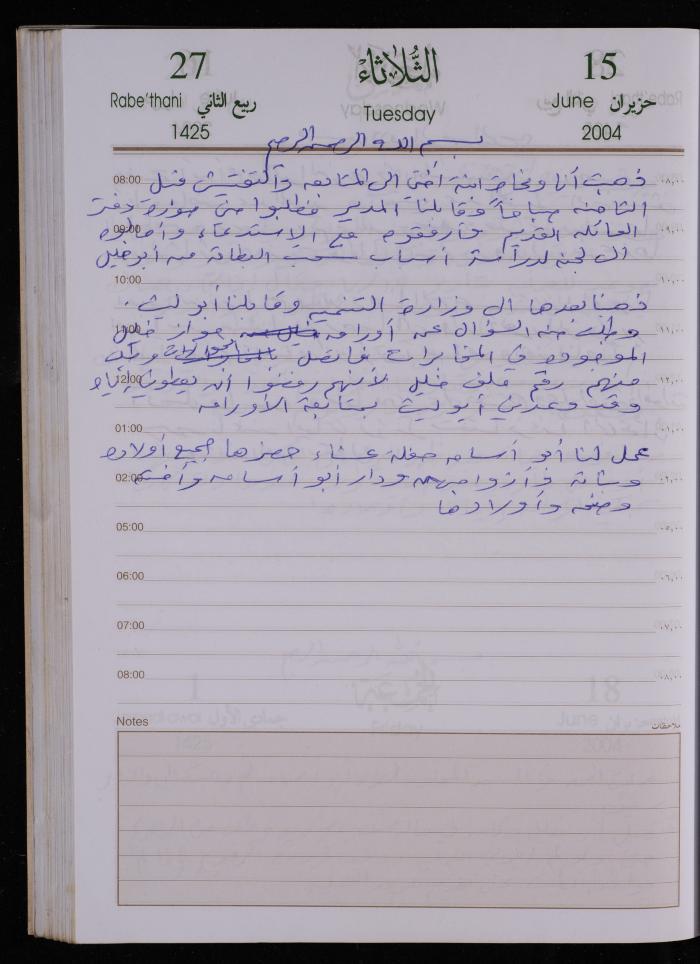 27 الثلاثاء 15
Rabe'thani ربيع الثاني Tuesday June حزيران
1425 2004
بسم الله الرحمن الرحيم
08:00 ذهبت أنا و ابنة أختي الى المتابعه والتفتيش قبل ٠٨,٠٠
الثامنه صباحاً وقابلنا المدير فطلبوا مني صورة دفتر
09:00 العائله القديم وأرفقوه مع الاستدعاء وأحالوه ٠٩,٠٠
الى لجنه لدراسة أسباب سحب البطاقة من أبو خليل
10:00 ١٠,٠٠
ذهبنا بعدها الى وزارة التنميه وقابلنا أبو ليث .
11:00 وطلبت منه السؤال عن أوراق جواز خليل ١١,٠٠
الموجوده في المخابرات فاتصل بالجوازات وطلب
12:00 منهم رقم ملف خليل لأنهم رفضوا أن يعطوني إياه ١٢,٠٠
وقد وعدني أبو ليث بمتابعة الأوراق
01:00 ٠١,٠٠
عمل لنا أبو أسامه حفلة عشاء حضرها جميع أولاده
02:00 وبناته وأزواجهم ودار أبو أسامه وأخته ٠٢,٠٠
وأولادها
05:00 ٠٥,٠٠
06:00 ٠٦,٠٠
07:00 ٠٧,٠٠
08:00 ٠٨,٠٠
Notes ملاحظات